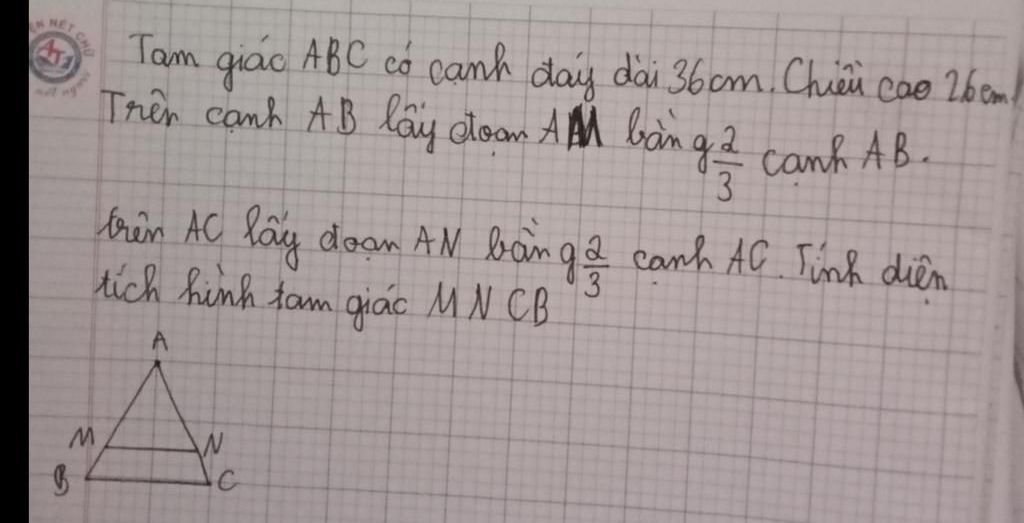 Tam giác ABC có cạnh đáy dài 36cm. Chiều cao 26cm
Trên cạnh AB lấy đoạn AM bằng 2/3 cạnh AB.
trên AC lấy đoạn AN bằng 2/3 cạnh AC. Tính diện
tích hình tam giác MNCB
A
M N
B C